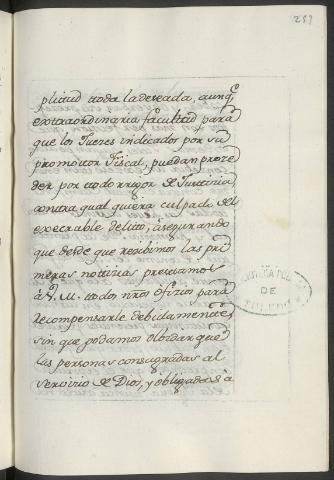 257
plitud toda la deseada, aunq.e
extraordinaria facultad para
que los Jueces indicados por su
promotor Fiscal, puedan proze
der por todo rigor de Justicia
contra qual quiera culpado del
execrable delito, asegurando
que desde que recibimos las pri
meras noticias prestamos
à V. M. todo nr̃os oficios para
recompensarle debidamente,
sin que podamos olvidar que
las personas consagradas al
servicio de Dios, y obligadas à
DE
TOLEDO